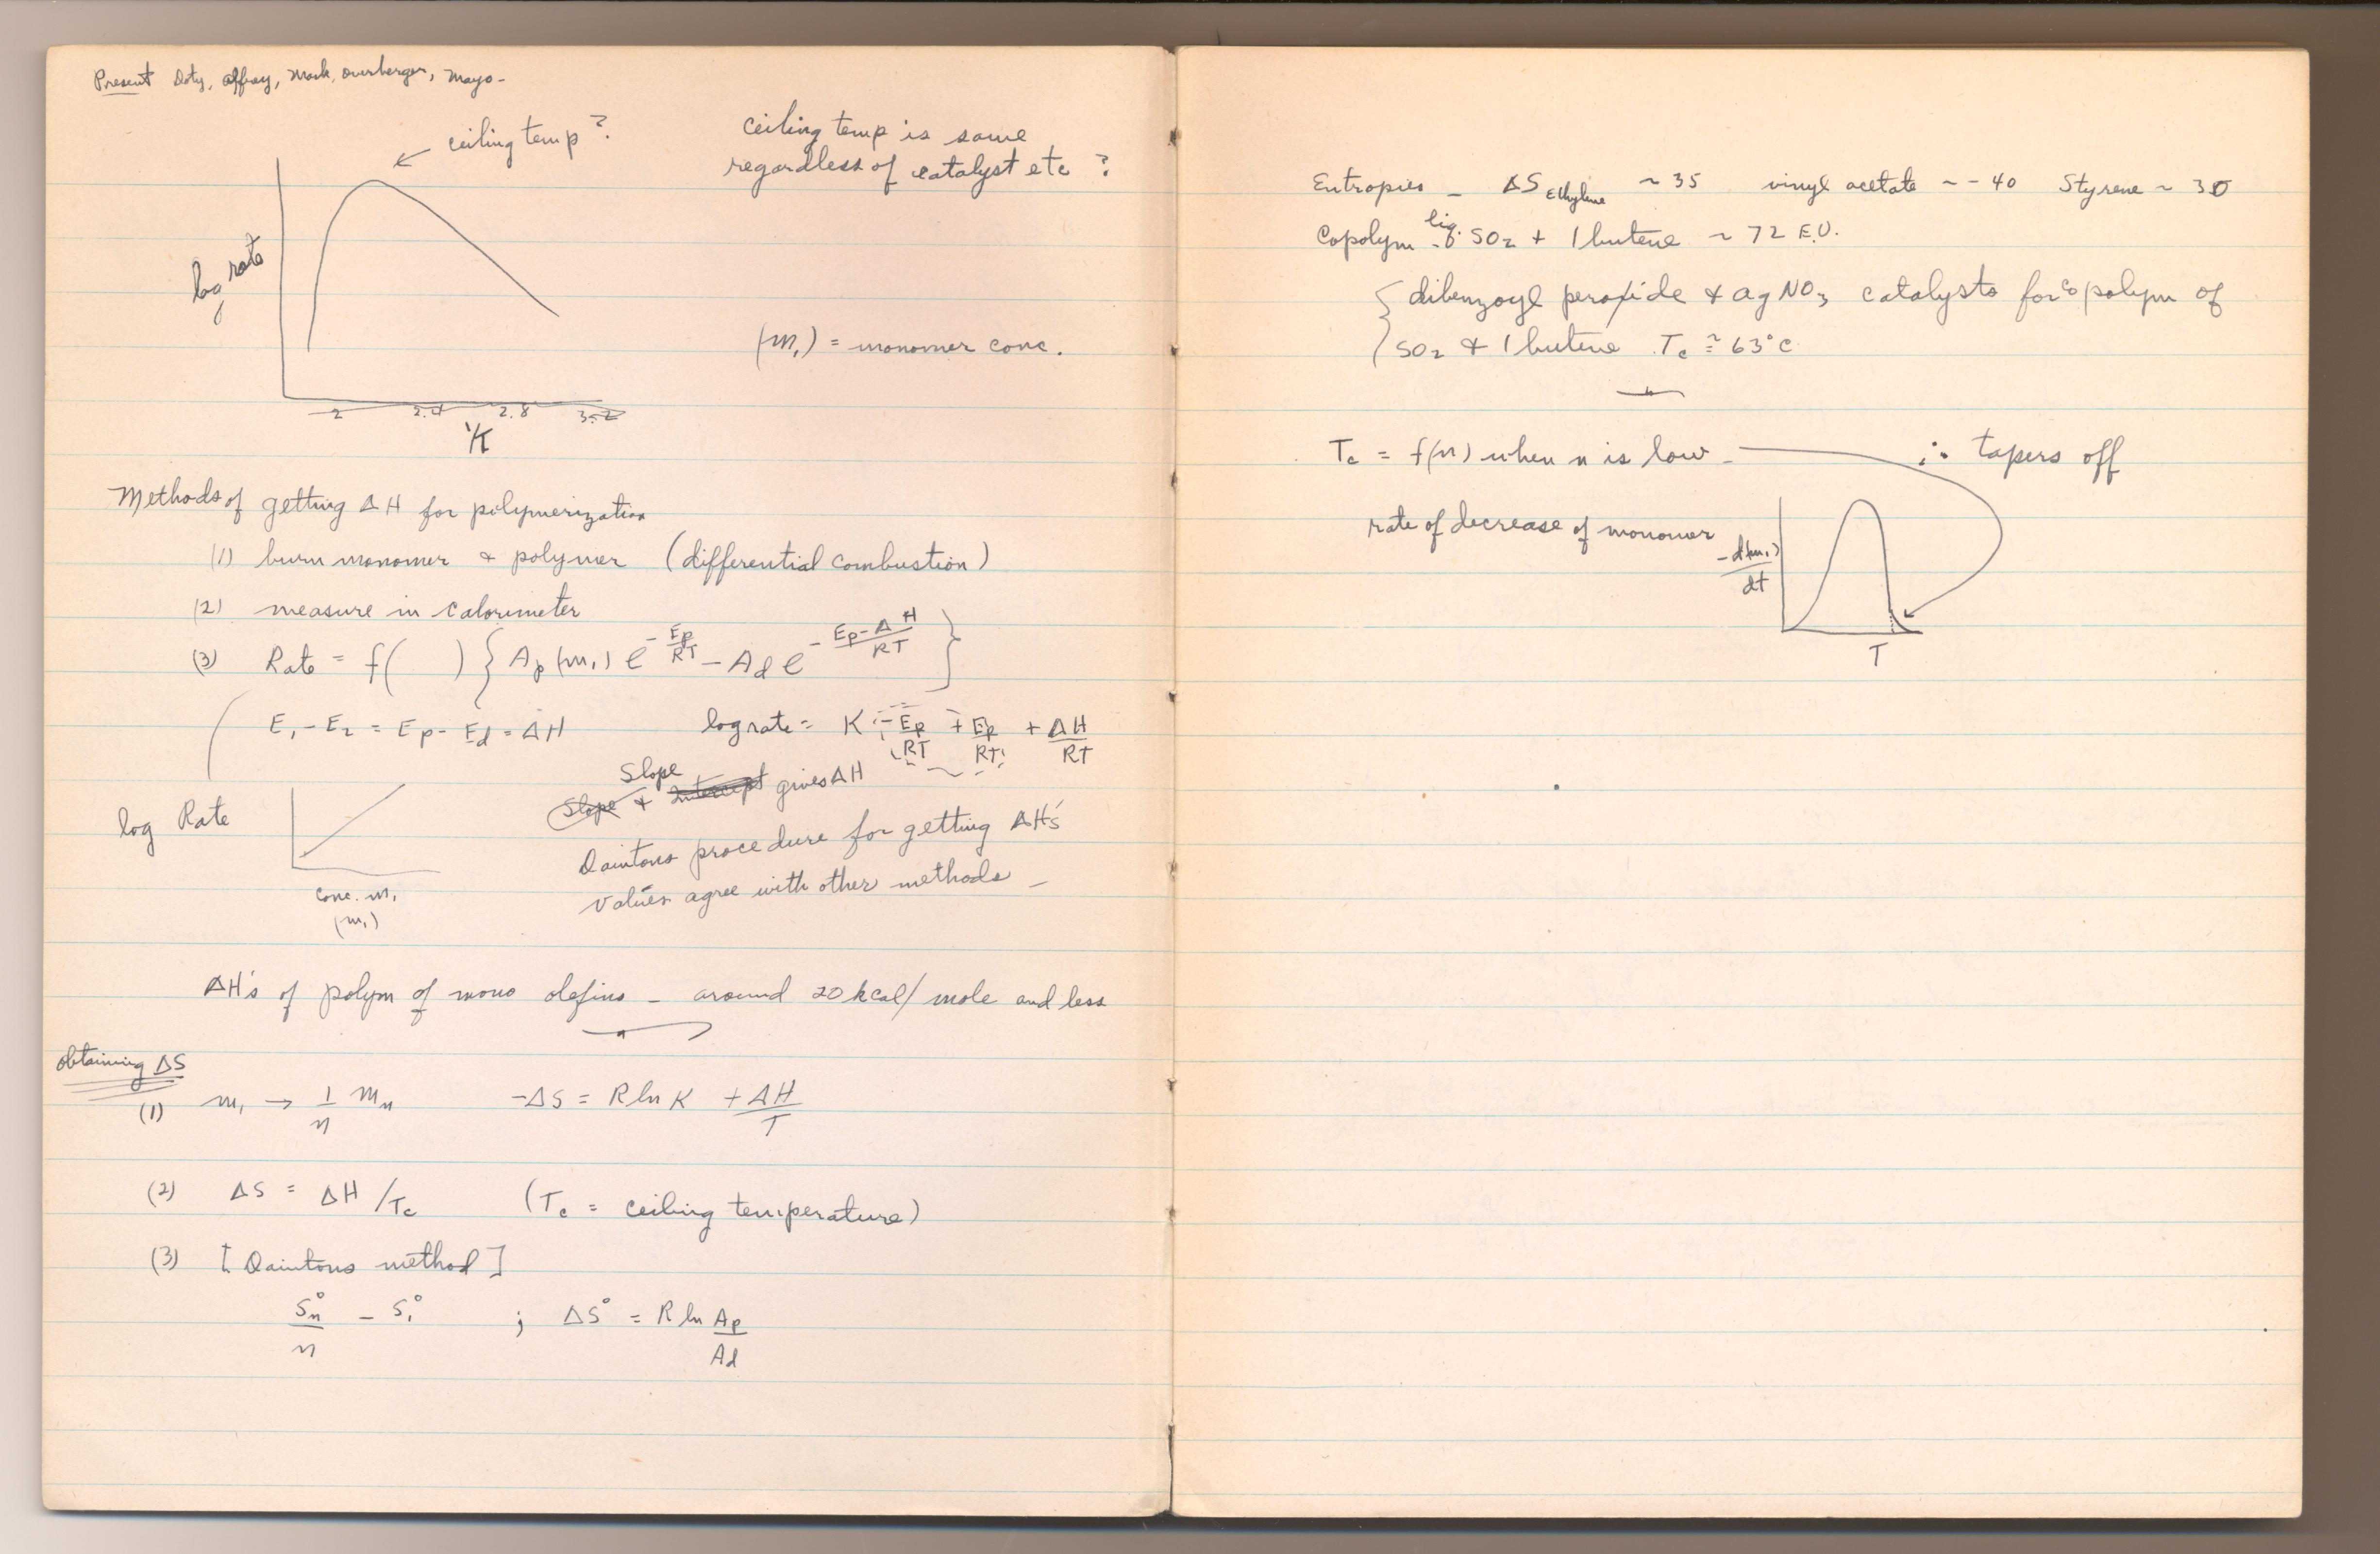 Present Doty, Alfrey, Mark, Overberger, Mayo -
ceiling temp ?
ceiling temp is same
regardless of catalyst etc ?
log rate
(m₁) = monomer conc.
2 2.4 2.8 3.2
¹/K
Methods of getting ΔH for polymerization
(1) burn monomer & polymer (differential combustion)
(2) measure in calorimeter
(3) Rate = f( ) { Ap (m₁) e^(-Ep/RT) - Ad e^(-(Ep-ΔH)/RT) }
E₁ - E₂ = Ep - Ed = ΔH
log rate = K - Ep/RT + Ep/RT + ΔH/RT
Slope
Slope & Intercept gives ΔH
log Rate
conc. m₁
(m₁)
Daintons procedure for getting ΔH's
values agree with other methods -
ΔH's of polym of mono olefins - around 20 kcal/mole and less
obtaining ΔS
(1) m₁ → 1/n mn -ΔS = R ln K + ΔH/T
(2) ΔS = ΔH/Tc (Tc = ceiling temperature)
(3) [Daintons method]
Sn°/n - S₁° ; ΔS° = R ln Ap/Ad
Entropies - ΔS Ethylene ~ 35 vinyl acetate ~ - 40 Styrene ~ 30
Copolym liq. SO₂ + 1 butene ~ 72 E.U.
{ dibenzoyl peroxide & AgNO₃ catalysts for copolym of
SO₂ & 1 butene Tc ≅ 63°C
Tc = f(n) when n is low - ∴ tapers off
rate of decrease of monomer
-d(m₁)/dt
T